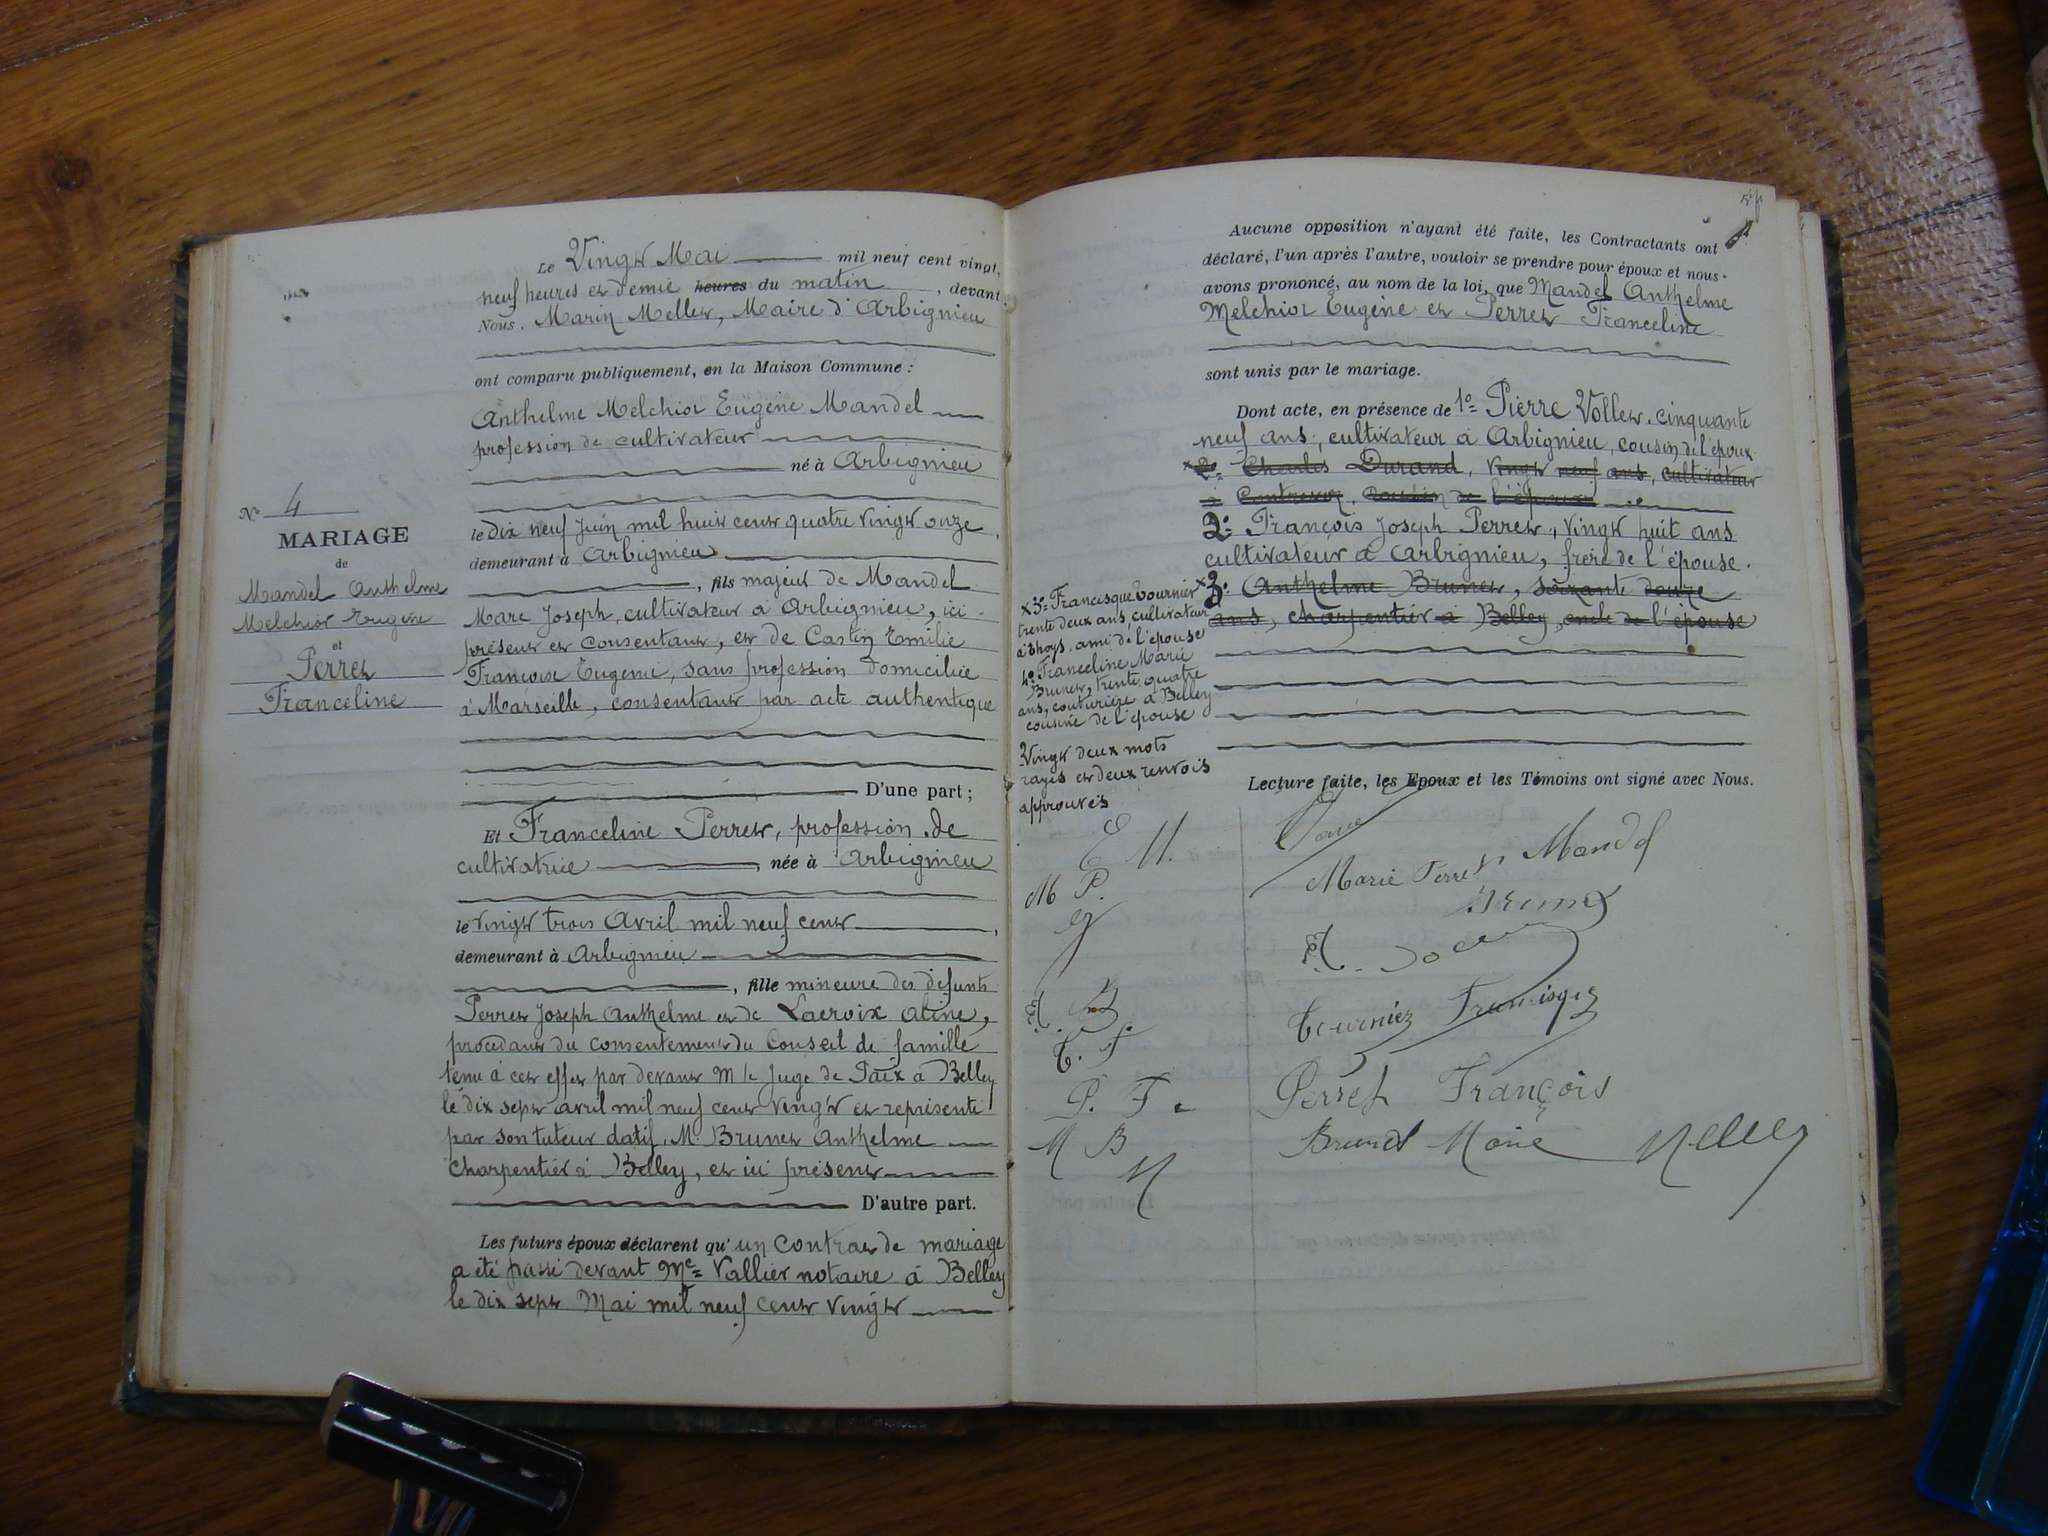 Le Vingt Mai mil neuf cent vingt,
neuf heures et demie heures du matin, devant
Nous, Marin Mellet, Maire d'Arbignieu
ont comparu publiquement, en la Maison Commune :
Anthelme Melchior Eugène Mandel
profession de cultivateur
né à Arbignieu
le dix neuf Juin mil huit cent quatre vingt onze,
demeurant à Arbignieu
, fils majeur de Mandel
Marc Joseph, cultivateur à Arbignieu, ici
présent et consentant, et de Castin Emilie
Françoise Eugenie, sans profession domiciliée
à Marseille, consentant par acte authentique
D'une part ;
Et Franceline Perret, profession de
cultivatrice, née à Arbignieu
le vingt trois Avril mil neuf cent,
demeurant à Arbignieu
, fille mineure des défunts
Perret Joseph Anthelme et de Lacroix Aline,
procédant du consentement du Conseil de famille
tenu à cet effet par devant M le Juge de Paix à Belley
le dix sept avril mil neuf cent vingt et représentée
par son tuteur datif, M. Brunet Anthelme
charpentier à Belley, et ici présent
D'autre part.
Les futurs époux déclarent qu'un contrat de mariage
a été passé devant Me Vallier notaire à Belley
le dix sept Mai mil neuf cent vingt
No 4
MARIAGE
de
Mandel Anthelme
Melchior Eugène
et
Perret
Franceline
Aucune opposition n'ayant été faite, les Contractants ont
déclaré, l'un après l'autre, vouloir se prendre pour époux et nous
avons prononcé, au nom de la loi, que Mandel Anthelme
Melchior Eugène et Perret Franceline
sont unis par le mariage.
Dont acte, en présence de 1o Pierre Vollet, cinquante
neuf ans, cultivateur à Arbignieu, cousin de l'époux
x 2o Charles Durand, vingt neuf ans, cultivateur
à Contrevoz, cousin de l'époux
2o François Joseph Perret, vingt huit ans
cultivateur à Arbignieu, frère de l'épouse.
x 3o Anthelme Brunet, soixante douze
ans, charpentier à Belley, oncle de l'épouse
x 3o Francisque Tournier
trente deux ans, cultivateur
à Thoys, ami de l'épouse
4o Franceline Marie
Brunet, trente quatre
ans, couturière à Belley
cousine de l'épouse
Vingt deux mots
rayés et deux renvois
approuvés
E M.
M P.
T. F
P. F.
M B
M
Lecture faite, les Epoux et les Témoins ont signé avec Nous.
Marie Perret Mandel
Brunet
Tournier Francisque
Perret François
Brunet Marie Mellet